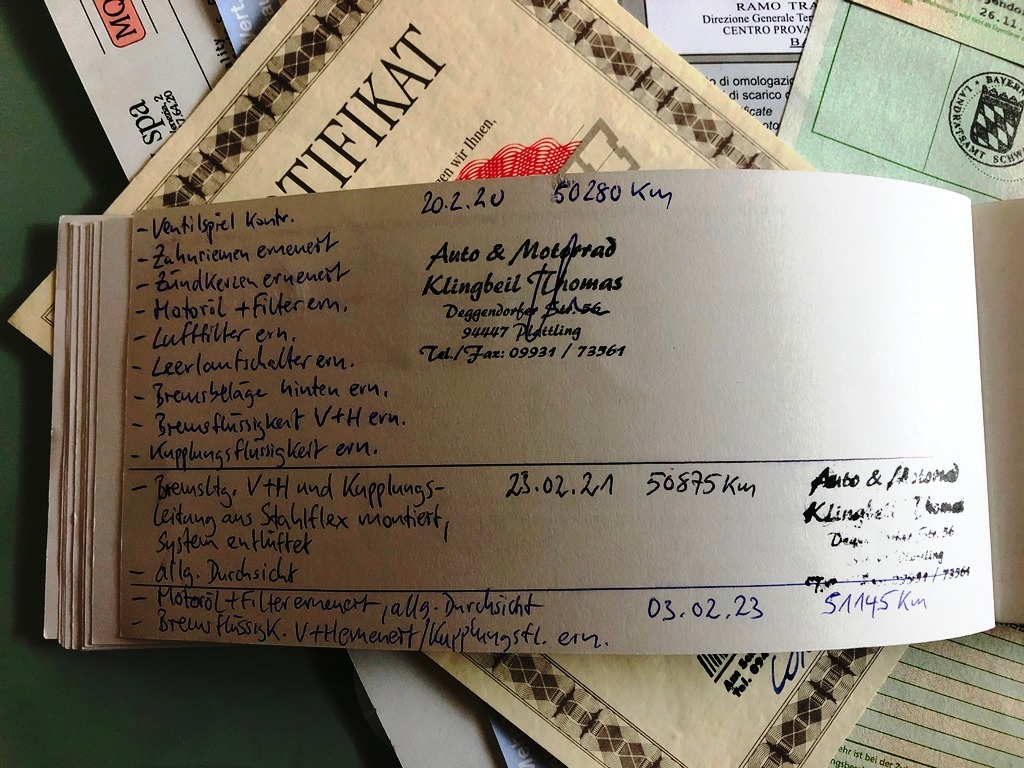 MO
spa
7.64.20
TIFIKAT
en wir Ihnen,
RAMO TRA
Direzione Generale Ter
CENTRO PROVA
BA
io di omologazio
di scarico
ficate
26.11.
BAYER
LANDRATSAMT SCHW
- Ventilspiel kontr.
20.2.20 50280 Km
- Zahnriemen erneuert
- Zündkerzen erneuert
- Motoröl + Filter ern.
- Luftfilter ern.
- Leerlaufschalter ern.
- Bremsbeläge hinten ern.
- Bremsflüssigkeit V+H ern.
- Kupplungsflüssigkeit ern.
Auto & Motorrad
Klingbeil Thomas
Deggendorfer Str. 56
94447 Plattling
Tel./Fax: 09931 / 73561
- Bremsltg. V+H und Kupplungs-
23.02.21 50875 Km
leitung aus Stahlflex montiert,
System entlüftet
- allg. Durchsicht
Auto & Motorrad
Klingbeil Thomas
Str. 56
Fax: 09931 / 73561
- Motoröl + Filter erneuert, allg. Durchsicht
03.02.23 51145 Km
- Bremsflüssigk. V+H erneuert / Kupplungsfl. ern.
Am
Tel. 09
ehr ist bei der Zu